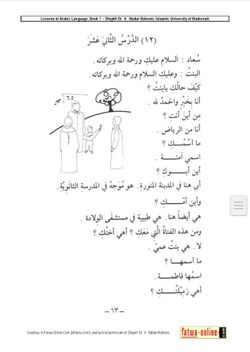 Lessons in Arabic Language, Book 1 - Shaykh Dr. V. 'Abdur-Raheem, Islamic University of Madeenah
(١٢) الدَّرْسُ الثَّانِيَ عَشَرَ
سُعاد : السلام عليكِ ورحمة الله وبركاته .
البنتُ : وعليكِ السلام ورحمة الله وبركاته .
كَيْفَ حَالُكِ يَابِنْتُ ؟
أَنا بِخَيْرٍ والحمدُ لله .
مِنْ أَيْنَ أَنتِ ؟
أنا من الرياض .
ما اسْمُـكِ ؟
اسمي آمنــة .
أين أَبـوكِ ؟
أبي هنا في المدينة المنورة . هو مُوَجِّهٌ في المدرسة الثانويَّة .
وأين أُمُّـكِ ؟
هي أيضاً هنا . هي طبيبة في مستشفى الولادة .
ومن هذه الفَتَاةُ الَّتي مَعَكِ ؟ أهي أُخْتُكِ ؟
لا . هي بنتُ عَمِّي .
ما اسمُها ؟
اسمُها فاطمــة .
أهي زَمِيْلَتُــكِ ؟
– ٦٣ –
fatwa-online